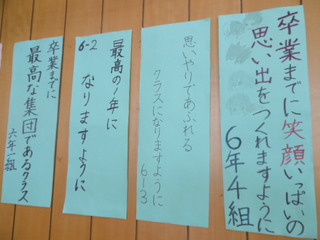 卒業までに笑顔いっぱいの
思い出をつくれますように
6年4組
思いやりであふれる
クラスになりますように
6-3
最高の1年に
なりますように
6-2
卒業までに
最高な集団であるクラス
六年一組